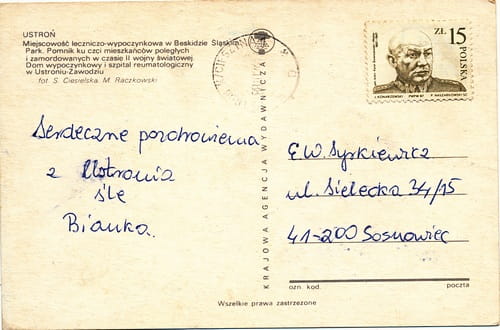 USTROŃ
Miejscowość leczniczo-wypoczynkowa w Beskidzie Śląskim
Park. Pomnik ku czci mieszkańców poległych
i zamordowanych w czasie II wojny światowej
Dom wypoczynkowy i szpital reumatologiczny
w Ustroniu-Zawodziu
fot S. Ciesielska, M. Raczkowski
Serdeczne pozdrowienia
z Ustronia
śle
Bianka.
KRAJOWA AGENCJA WYDAWNICZA
ZŁ 15
POLSKA
E.W. Syrkiewicz
ul. Sielecka 34/15
41-200 Sosnowiec
ozn. kod.
poczta
Wszelkie prawa zastrzeżone